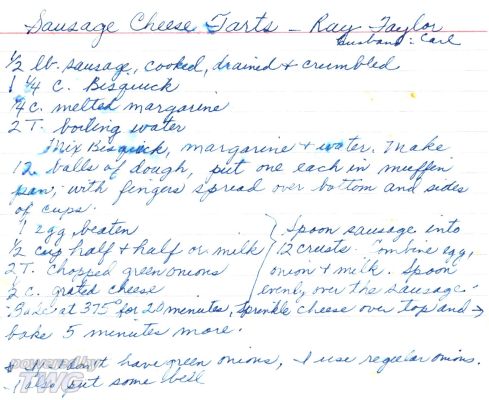 Sausage Cheese Tarts - Ray Taylor
Husband: Carl
1/2 lb. sausage, cooked, drained & crumbled
1 1/4 c. Bisquick
1/4 c. melted margarine
2 T. boiling water
Mix Bisquick, margarine & water. Make
12 balls of dough, put one each in muffin
pan; with fingers spread over bottom and sides
of cups.
1 egg beaten
1/2 cup half & half or milk
2 T. chopped green onions
1/2 c. grated cheese
Spoon sausage into
12 crusts. Combine egg,
onion & milk. Spoon
evenly over the sausage.
Bake at 375° for 20 minutes, sprinkle cheese over top and →
bake 5 minutes more.
don't have green onions, I use regular onions.
I also put some bell
powered by
TWG